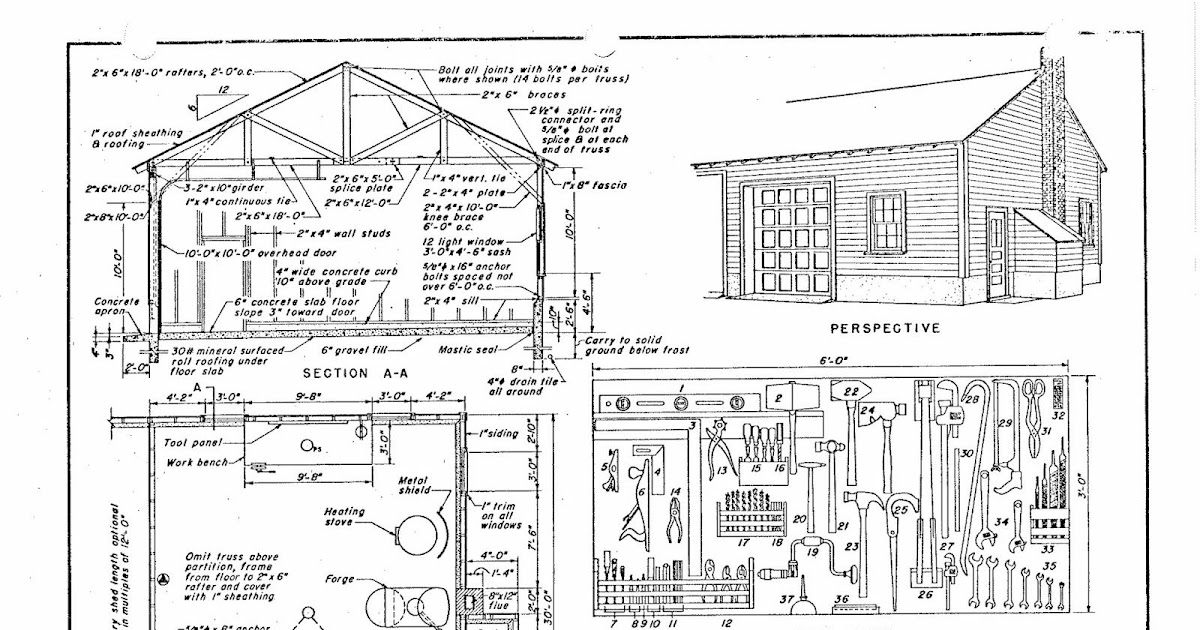 2"x 6"x 18'-0" rafters, 2'-0"o.c.
12
6
Bolt all joints with 5/8" ϕ bolts
where shown (14 bolts per truss)
2"x 6" braces
2 1/2"ϕ split-ring
connector and
5/8"ϕ bolt at
splice & at each
end of truss
1" roof sheathing
& roofing
2"x6"x10'-0"
3-2"x10"girder
2"x 6"x 5'-0"
splice plate
1"x 4" vert. tie
1"x 8" fascia
1"x 4" continuous tie
2"x6"x12'-0"
2-2"x 4" plate
2"x8"x10'-0"
2"x6"x18'-0"
2"x 4"x 10'-0"
knee brace
6'-0" o.c.
2"x4" wall studs
12 light window
3'-0"x4'-6" sash
10'-0"x10'-0" overhead door
10'-0"
10'-0"
4" wide concrete curb
10" above grade
5/8"ϕ x 16" anchor
bolts spaced not
over 6'-0"o.c.
Concrete
apron
6" concrete slab floor
slope 3" toward door
2"x 4" sill
10"
2'-6"
4'-6"
4"
3"
30# mineral surfaced
roll roofing under
floor slab
6" gravel fill
Mastic seal
Carry to solid
ground below frost
2'-0"
8"
4"ϕ drain tile
all around
SECTION A-A
PERSPECTIVE
A
4'-2"
3'-0"
9'-8"
3'-0"
4'-2"
Tool panel
Work bench
3'-0"
9'-8"
1"siding
2'-10"
3'-0"
Metal
shield
Heating
stove
1" trim
on all
windows
7'-6"
4'-0"
1'-4"
Omit truss above
partition, frame
from floor to 2"x 6"
rafter and cover
with 1" sheathing
Forge
8"x12"
flue
2'-0"
30'-0"
shed length optional
in multiples of 12'-0"
6'-0"
3'-0"
1
2
3
4
5
6
7
8
9
10
11
12
13
14
15
16
17
18
19
20
21
22
23
24
25
26
27
28
29
30
31
32
33
34
35
36
37